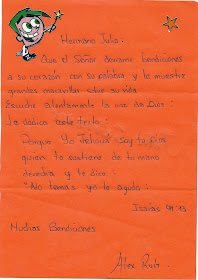 Hermano Julio:
Que el Señor derrame bendiciones
a su corazón con su palabra y le muestre
grandes maravillas sobre su vida
Escucha atentamente la voz de Dios:
le dedico este texto:
Porque Yo Jehová soy tu Dios
quien te sostiene de tu mano
derecha y te dice:
"No temas yo te ayudo.
Isaías 41:13
Muchas Bendiciones
Alex Ruiz.